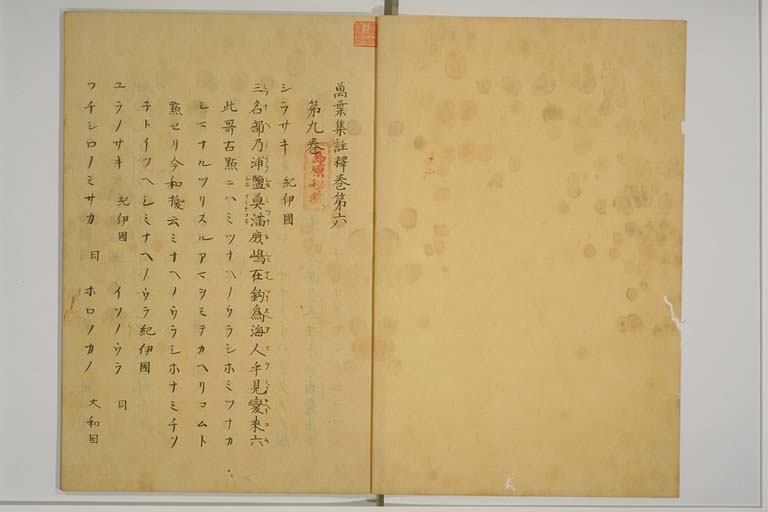 萬葉集註釋巻第六
第九巻
シラサキ 紀伊國
三名部乃浦鹽莫滿鹿嶋在釣爲海人乎見變來六
此哥古點ニハミツナヘノウラシホミツナカ
シマナルツリスルアマヲミテカヘリコムト
點セリ今和換云ミナヘノウラシホナミチソ
子トイフヘシミナヘノウラ 紀伊國
ユラノサキ 紀伊國 イソノウラ 同
フチシロノミサカ 同 ホロノカノ 大和国